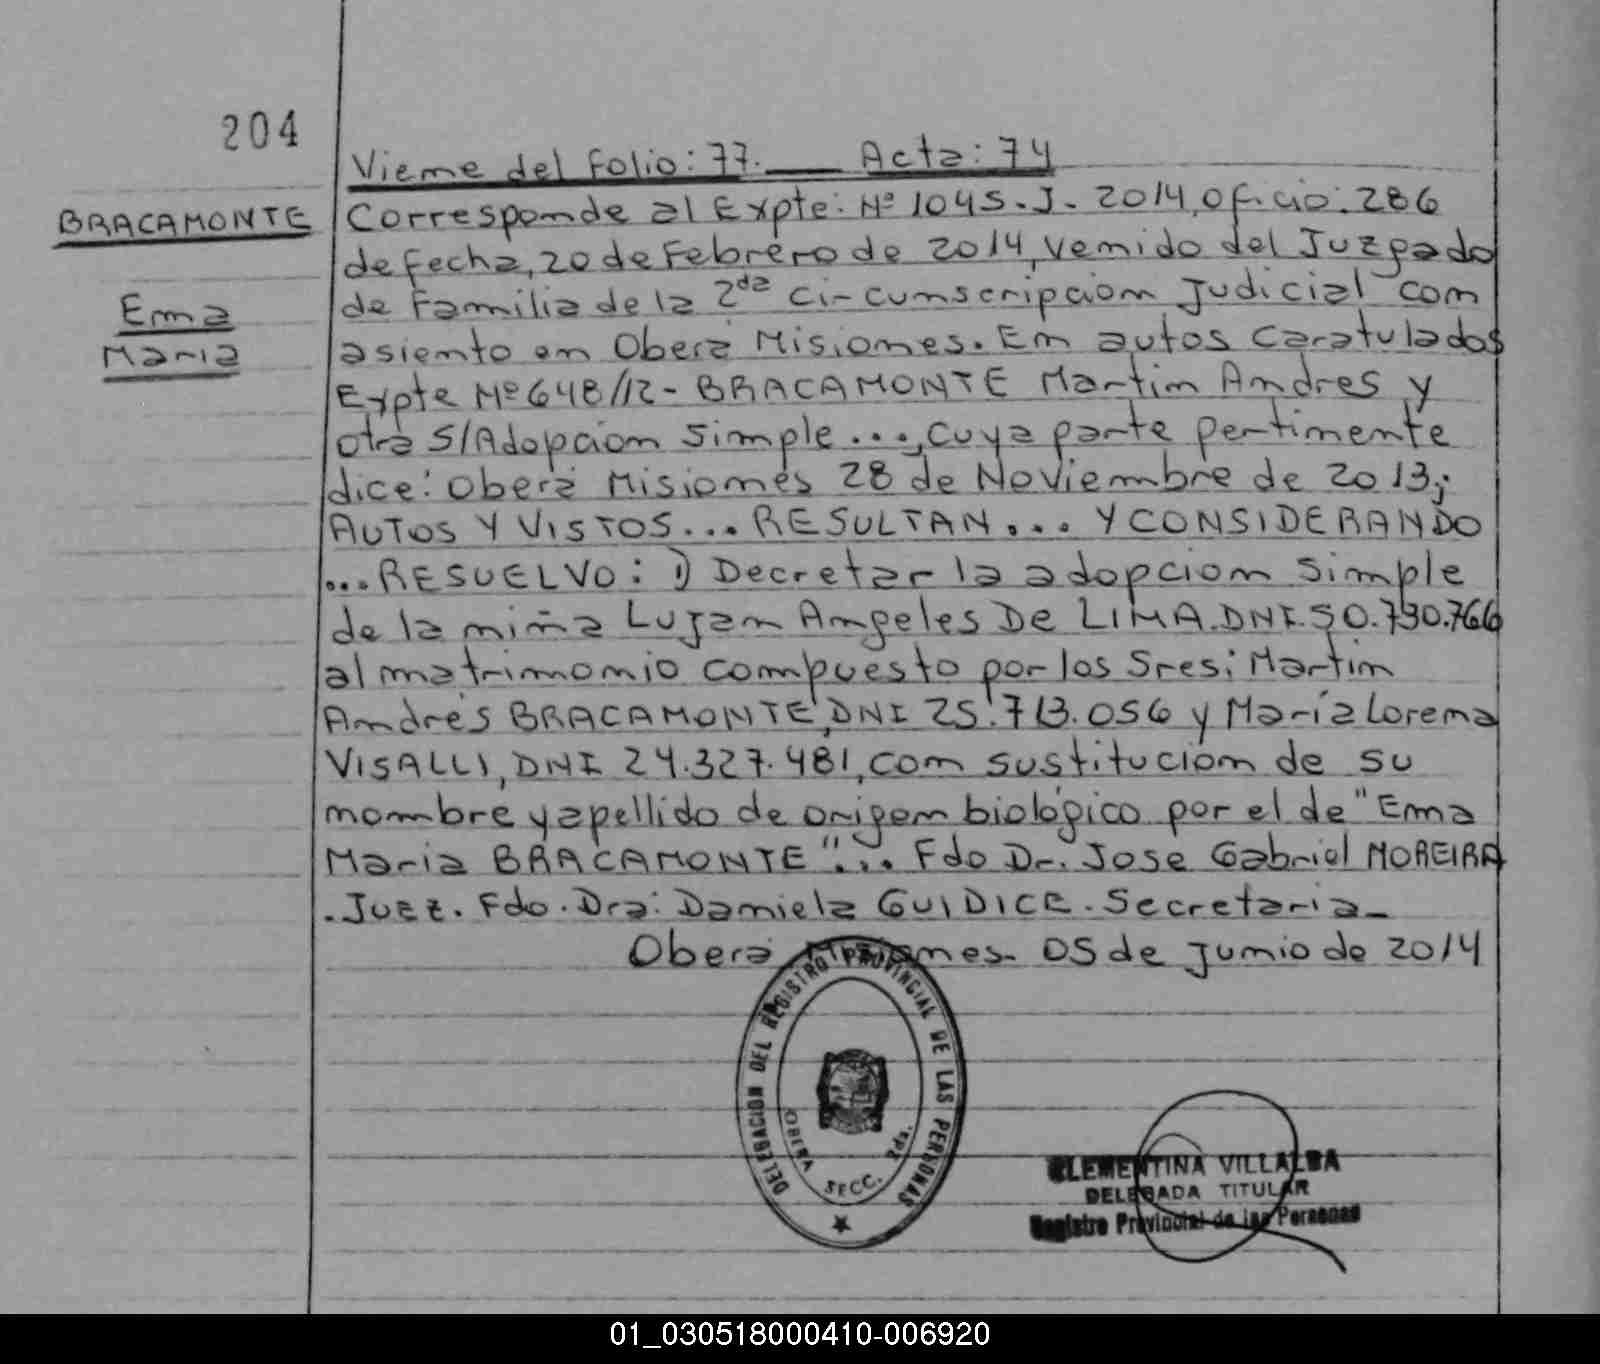 204
Viene del Folio: 77. Acta: 74
BRACAMONTE
Ema
Maria
Corresponde al Expte: Nº 1045.J. 2014, oficio: 286
de fecha, 20 de Febrero de 2014, venido del Juzgado
de Familia de la 2da circunscripcion Judicial con
asiento en Oberá Misiones. En autos caratulados
Expte Nº 648/12 - BRACAMONTE Martin Andres y
otra S/Adopcion Simple ..., cuya parte pertinente
dice: Oberá Misiones 28 de Noviembre de 2013;
AUTOS Y VISTOS... RESULTAN... Y CONSIDERANDO
...RESUELVO: 1) Decretar la adopcion simple
de la niña Lujan Angeles De LIMA. DNI. 50.790.766
al matrimonio compuesto por los Sres; Martin
Andrés BRACAMONTE, DNI 25.713.056 y María Lorena
VISALLI, DNI 24.327.481, con sustitucion de su
nombre y apellido de origen biológico por el de "Ema
Maria BRACAMONTE"... Fdo Dr. Jose Gabriel MOREIRA
. Juez. Fdo. Dra: Daniela GUIDICE. Secretaria_
Oberá Misiones. 05 de Junio de 2014
DELEGACION DEL REGISTRO PROVINCIAL DE LAS PERSONAS
OBERA SECC. 2da.
CLEMENTINA VILLALBA
DELEGADA TITULAR
Registro Provincial de las Personas
01_030518000410-006920